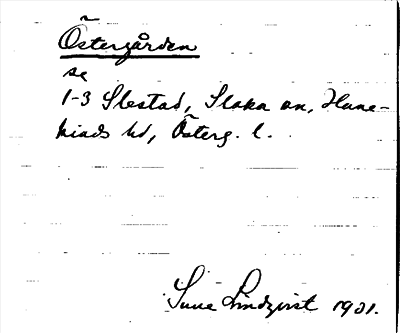 Östergården
se
1-3 Slestad, Slaka sn, Hane-
kinds hd, Österg. l.
Sune Lindqvist 1931.